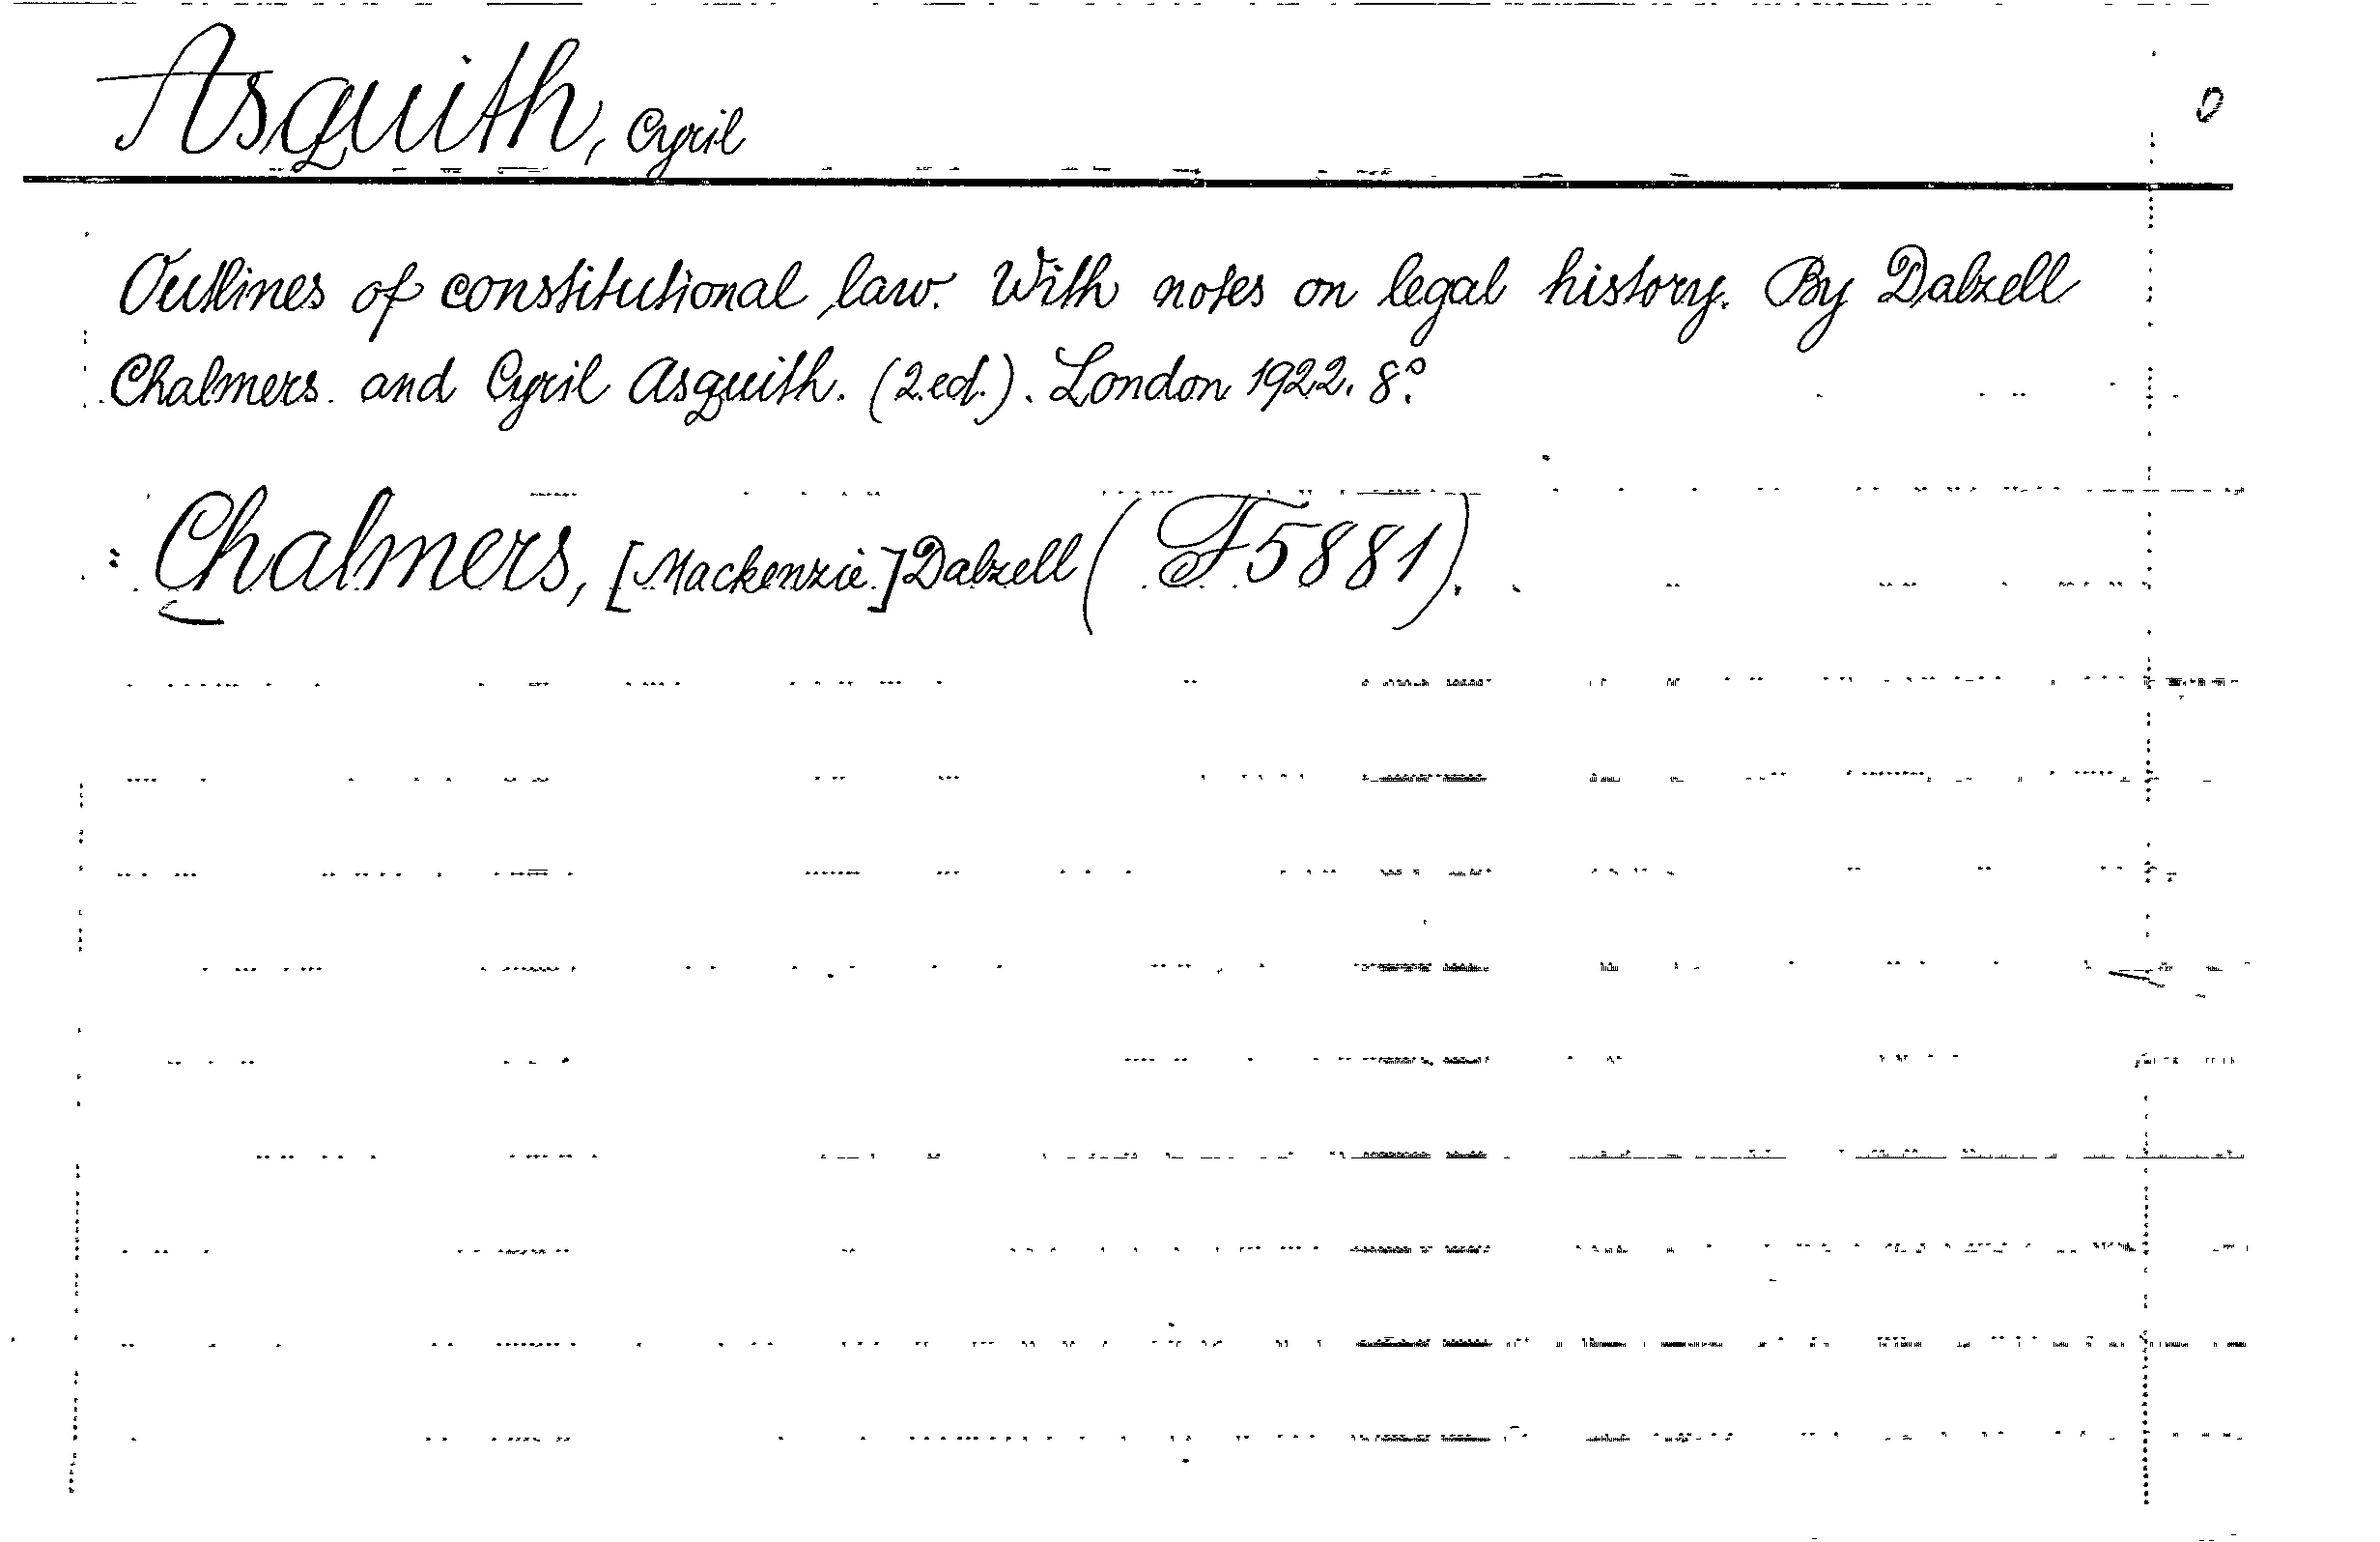 Asquith, Cyril 0
Outlines of constitutional law. With notes on legal history. By Dalzell
Chalmers and Cyril Asquith. (2.ed.). London 1922. 8°.
: Chalmers, [Mackenzie] Dalzell (F5881).